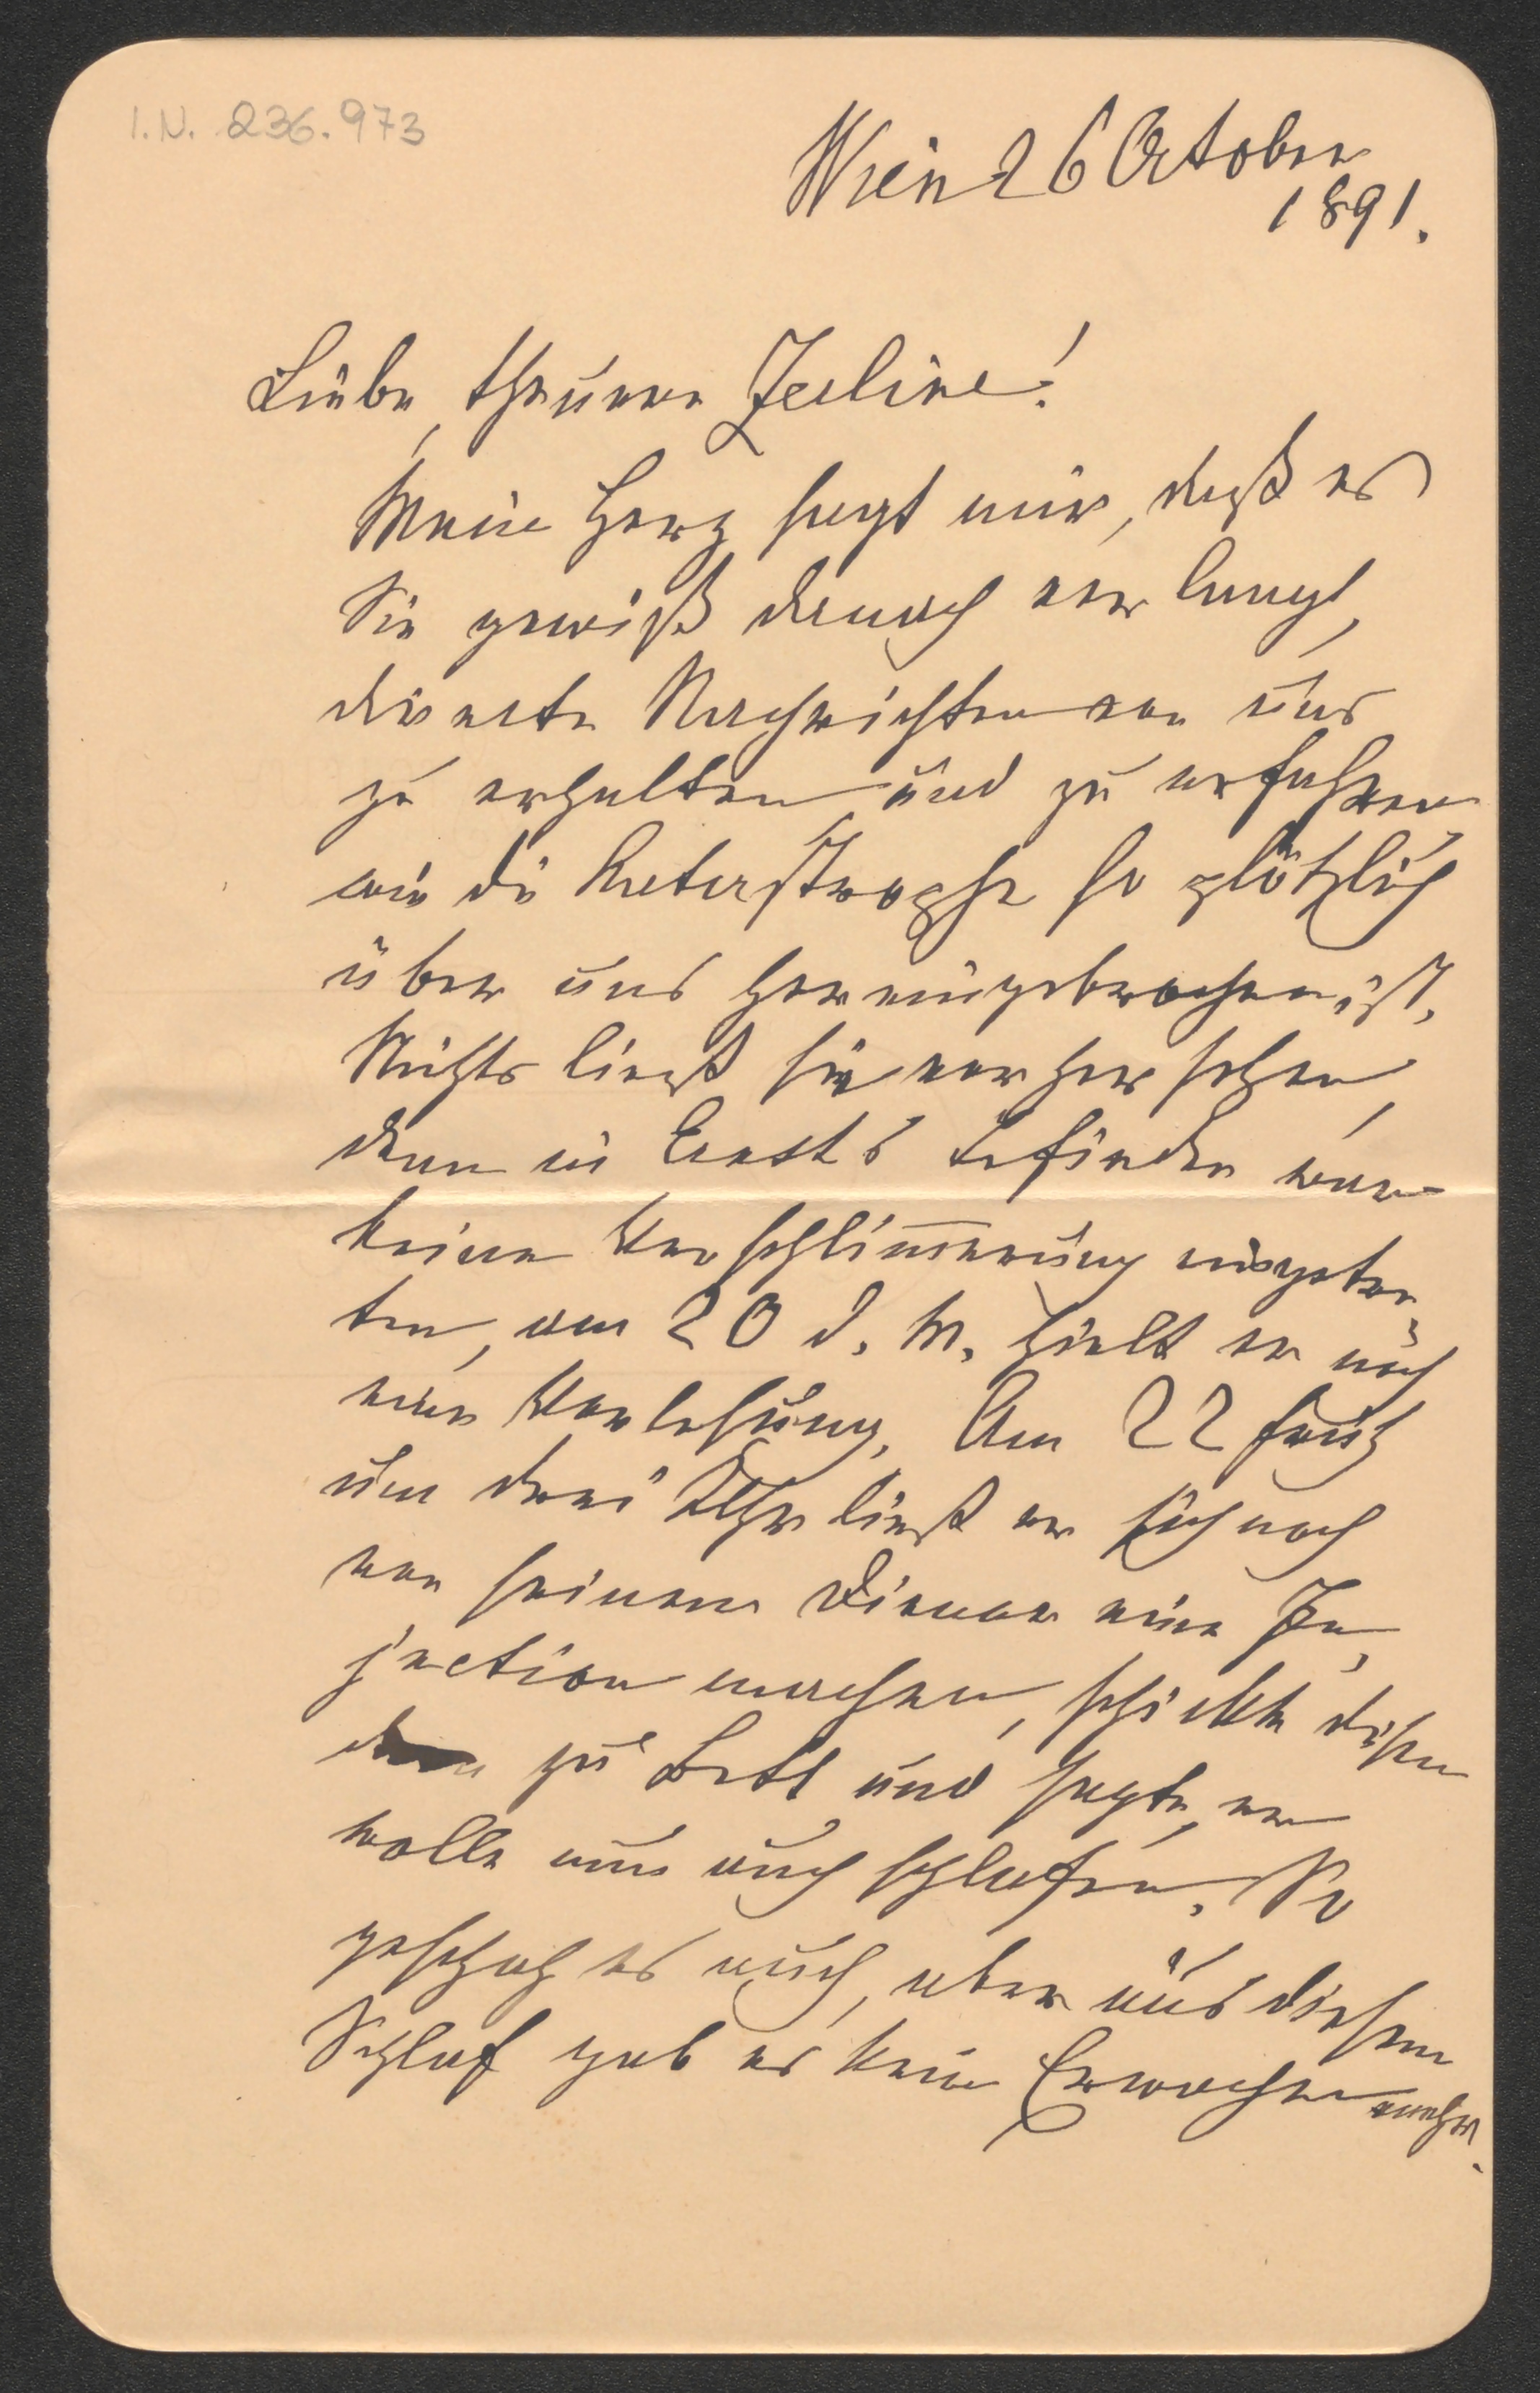 I.N. 236.973
Wien 26 October
1891.
Liebe, theuere Zeline!
Mein Herz sagt mir, daß es
Sie gewiß danach verlangt,
directe Nachrichten von uns
zu erhalten und zu erfahren
wie die Katastrophe so plötzlich
über uns hereingebrochen ist.
Nichts ließ sie vorhersehen,
denn in Ernst's Befinden war
keine Verschlim̅erung eingetre,
ten, am 20 d. M. hielt er noch
eine Vorlesung. Am 22 früh
um drei Uhr ließ er sich noch
von seinem Diener eine In,
jection machen, schickte diesen
zu Bett und sagte, er
wolle nun auch schlafen. So
geschah es auch, aber aus diesem
Schlaf gab es kein Erwachen mehr.